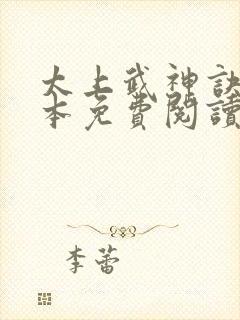 太上武神訣
本免費閱讀
李蕾